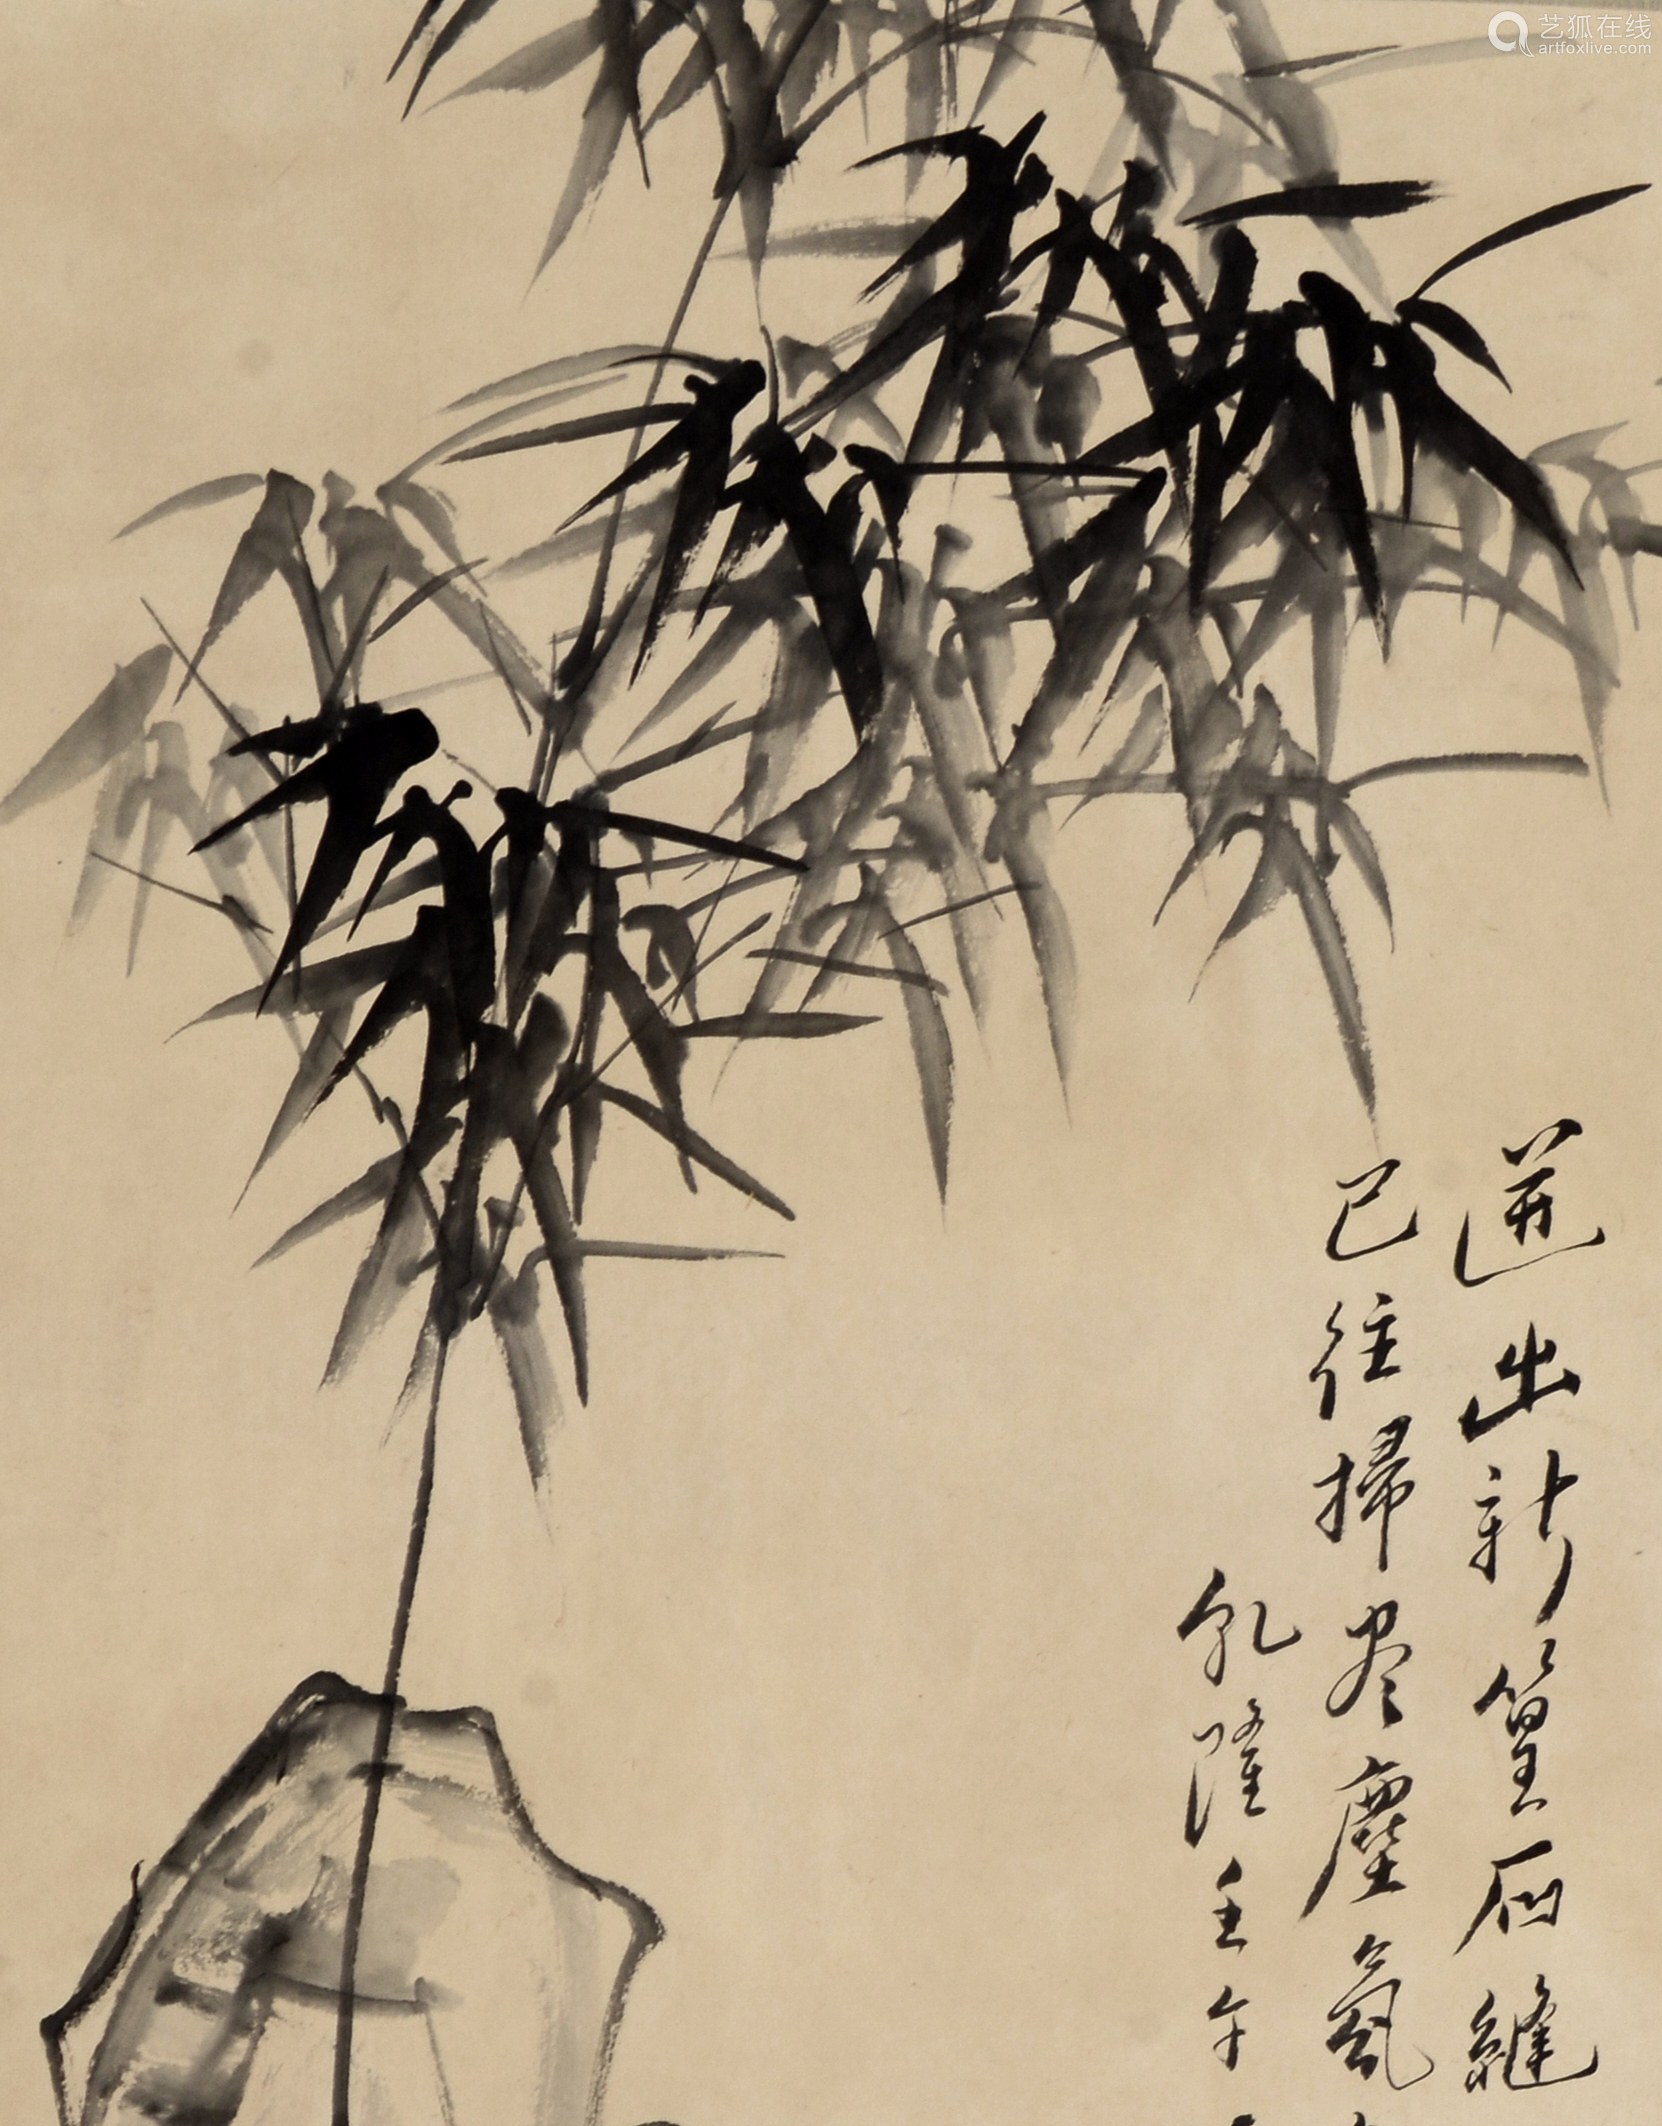 艺狐在线
artfoxlive.com
迸出新篁石縫
已往掃尽塵氣
乾隆壬午